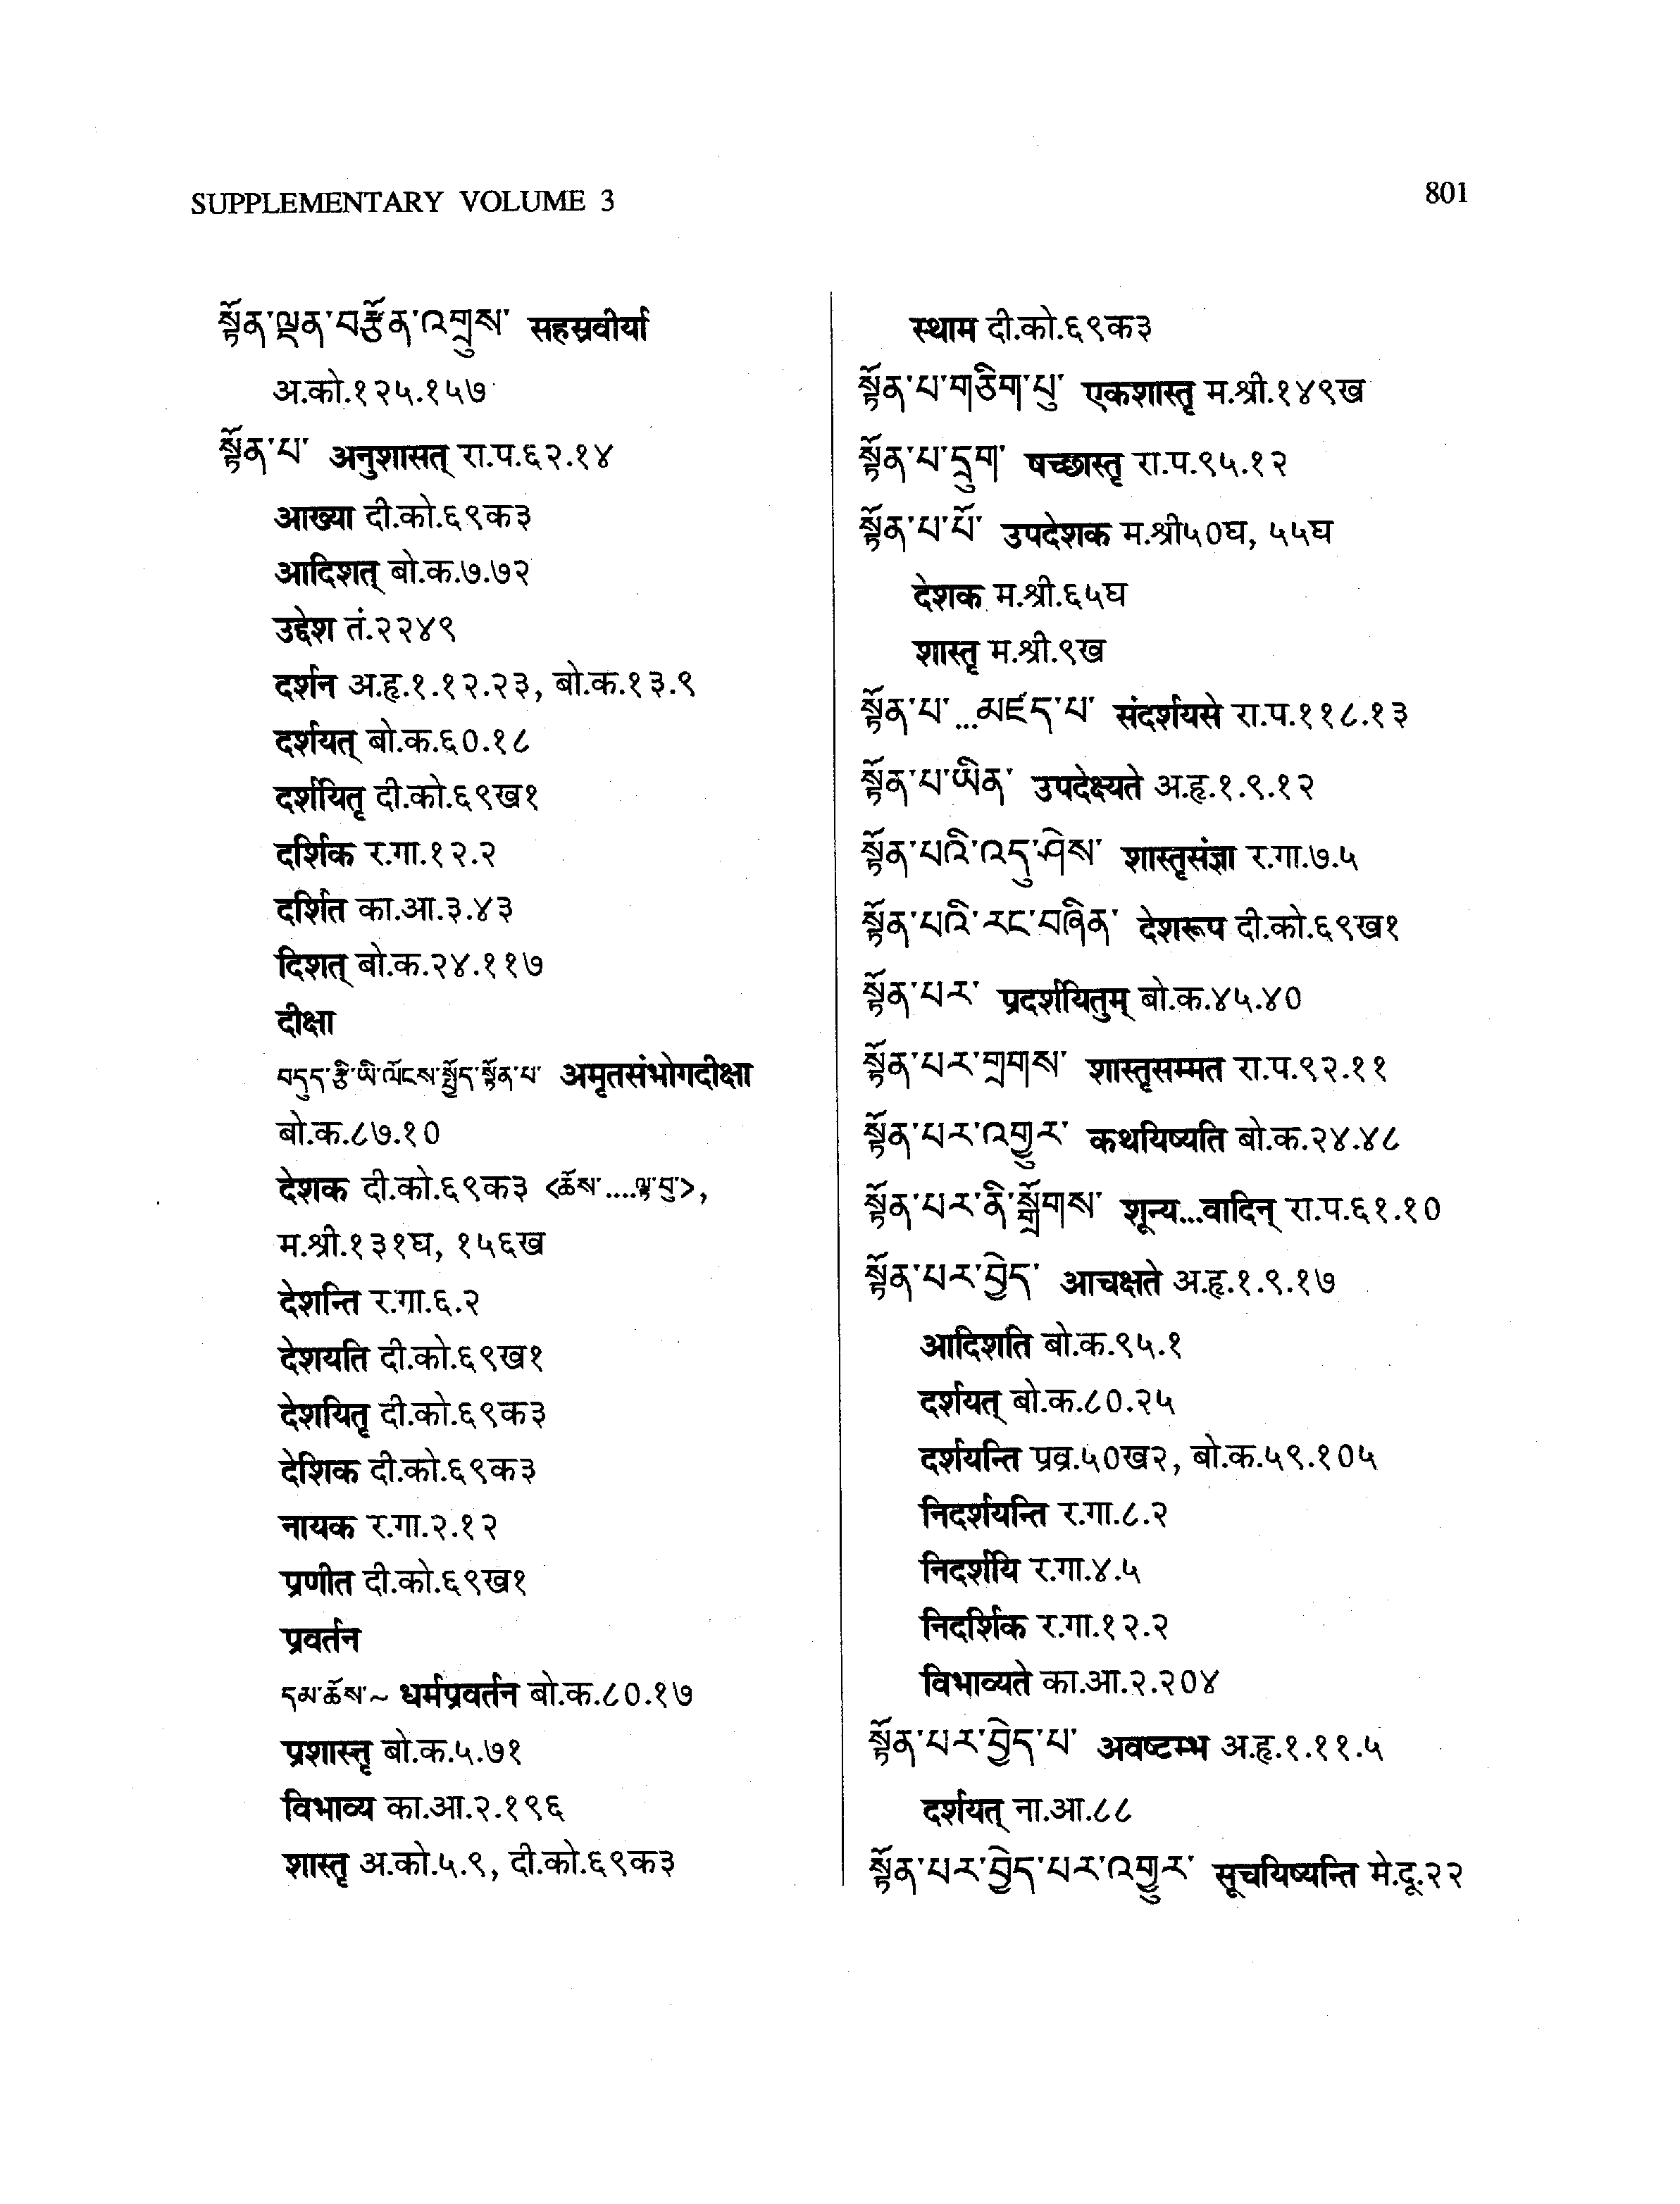 SUPPLEMENTARY VOLUME 3
801
སྟོན་ལྡན་བརྩོན་འགྲུས་ सहस्रवीर्या
अ.को.१२५.१५७
སྟོན་པ་ अनुशासत् रा.प.६२.१४
आख्या दी.को.६९क३
आदिशत् बो.क.७.७२
उद्देश तं.२२४९
दर्शन अ.हृ.१.१२.२३, बो.क.१३.९
दर्शयत् बो.क.६०.१८
दर्शयितृ दी.को.६९ख१
दर्शिक र.गा.१२.२
दर्शित का.आ.३.४३
दिशत् बो.क.२४.११७
दीक्षा
བདུད་རྩི་ཡི་ལོངས་སྤྱོད་སྟོན་པ་ अमृतसंभोगदीक्षा
बो.क.८७.१०
देशक दी.को.६९क३ <ཆོས་....ལྟ་བུ>,
म.श्री.१३१घ, १५६ख
देशन्ति र.गा.६.२
देशयति दी.को.६९ख१
देशयितृ दी.को.६९क३
देशिक दी.को.६९क३
नायक र.गा.२.१२
प्रणीत दी.को.६९ख१
प्रवर्तन
དམ་ཆོས་~ धर्मप्रवर्तन बो.क.८०.१७
प्रशास्तृ बो.क.५.७१
विभाव्य का.आ.२.१९६
शास्तृ अ.को.५.९, दी.को.६९क३
स्थाम दी.को.६९क३
སྟོན་པ་གཅིག་པུ་ एकशास्तृ म.श्री.१४९ख
སྟོན་པ་དྲུག་ षच्छास्तृ रा.प.९५.१२
སྟོན་པ་པོ་ उपदेशक म.श्री५०घ, ५५घ
देशक म.श्री.६५घ
शास्तृ म.श्री.९ख
སྟོན་པ་...མཛད་པ་ संदर्शयसे रा.प.११८.१३
སྟོན་པ་ཡིན་ उपदेक्ष्यते अ.हृ.१.९.१२
སྟོན་པའི་འདུ་ཤེས་ शास्तृसंज्ञा र.गा.७.५
སྟོན་པའི་རང་བཞིན་ देशरूप दी.को.६९ख१
སྟོན་པར་ प्रदर्शयितुम् बो.क.४५.४०
སྟོན་པར་གྲགས་ शास्तृसम्मत रा.प.९२.११
སྟོན་པར་འགྱུར་ कथयिष्यति बो.क.२४.४८
སྟོན་པར་ནི་སྒྲོགས་ शून्य...वादिन् रा.प.६१.१०
སྟོན་པར་བྱེད་ आचक्षते अ.हृ.१.९.१७
आदिशति बो.क.९५.१
दर्शयत् बो.क.८०.२५
दर्शयन्ति प्रव्र.५०ख२, बो.क.५९.१०५
निदर्शयन्ति र.गा.८.२
निदर्शयि र.गा.४.५
निदर्शिक र.गा.१२.२
विभाव्यते का.आ.२.२०४
སྟོན་པར་བྱེད་པ་ अवष्टम्भ अ.हृ.१.११.५
दर्शयत् ना.आ.८८
སྟོན་པར་བྱེད་པར་འགྱུར་ सूचयिष्यन्ति मे.दू.२२